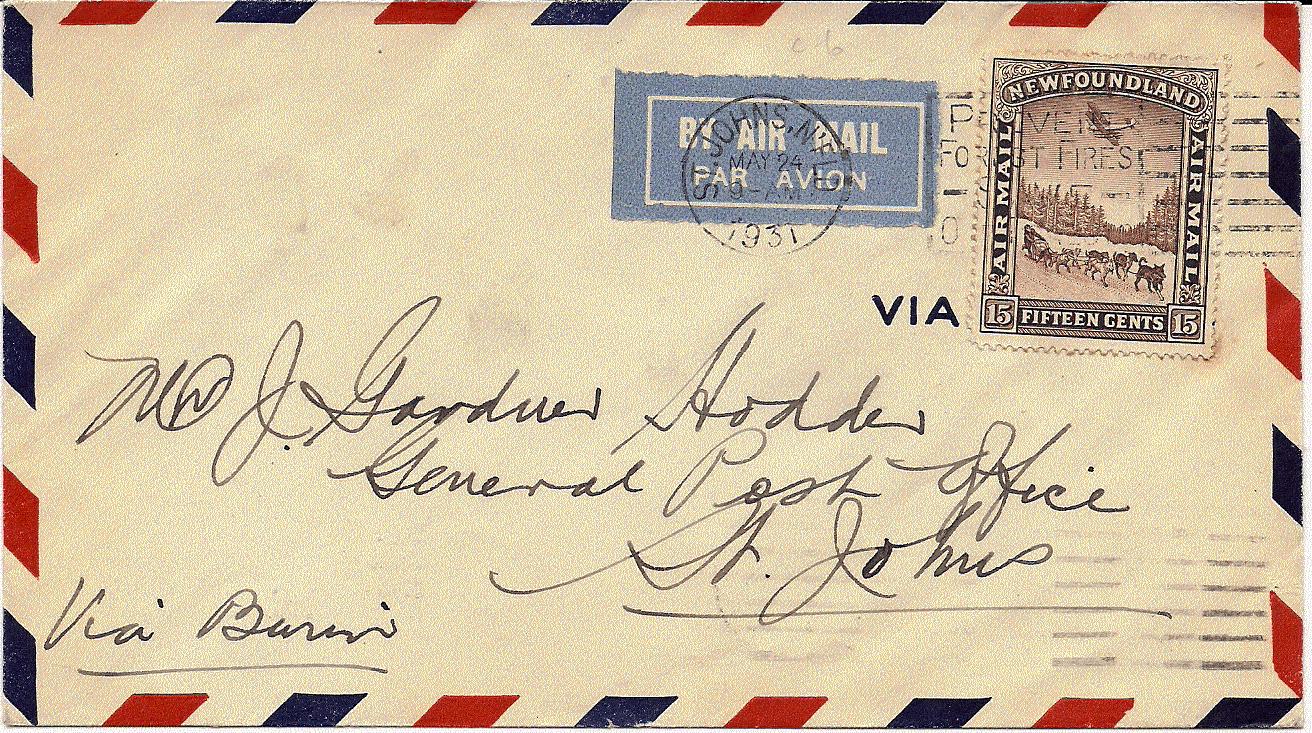 BY AIR MAIL
PAR AVION
ST. JOHNS, NFLD
MAY 24
9 - AM
1931
FOREST FIRES
NEWFOUNDLAND
AIR MAIL
AIR MAIL
15 FIFTEEN CENTS 15
VIA
J. Gardner Hodder
General Post Office
St. Johns
Via Burin